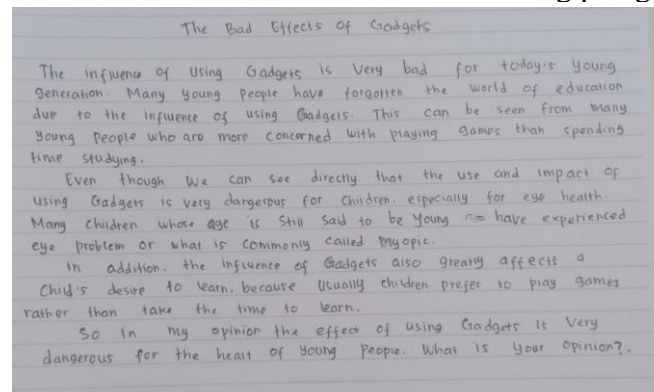 The Bad Effects of Gadgets
The influence of using Gadgets is very bad for today's young
generation. Many young people have forgotten the world of education
due to the influence of using Gadgets. This can be seen from many
young people who are more concerned with playing games than spending
time studying.
Even though we can see directly that the use and impact of
using Gadgets is very dangerous for children. especially for eye health.
Many children whose age is still said to be young have experienced
eye problem or what is commonly called myopic.
in addition. the influence of Gadgets also greatly affects a
child's desire to learn, because usually children prefer to play games
rather than take the time to learn.
So in my opinion the effect of using Gadgets is very
dangerous for the healt of young people. What is your opinion?.